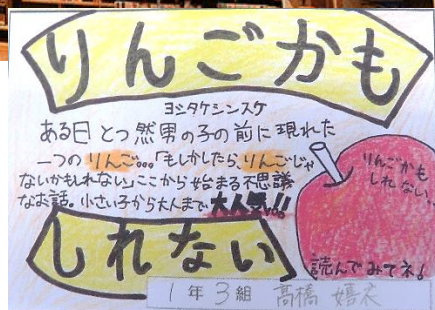 りんごかも
ヨシタケシンスケ
ある日 とつ然男の子の前に現れた
一つのりんご。。。「もしかしたら、りんごじゃ
ないかもしれない」ここから始まる不思議
なお話。小さい子から大人まで大人気!!
しれない
りんごかも
しれない。
読んでみてネ!
1年3組 高橋 嬉衣